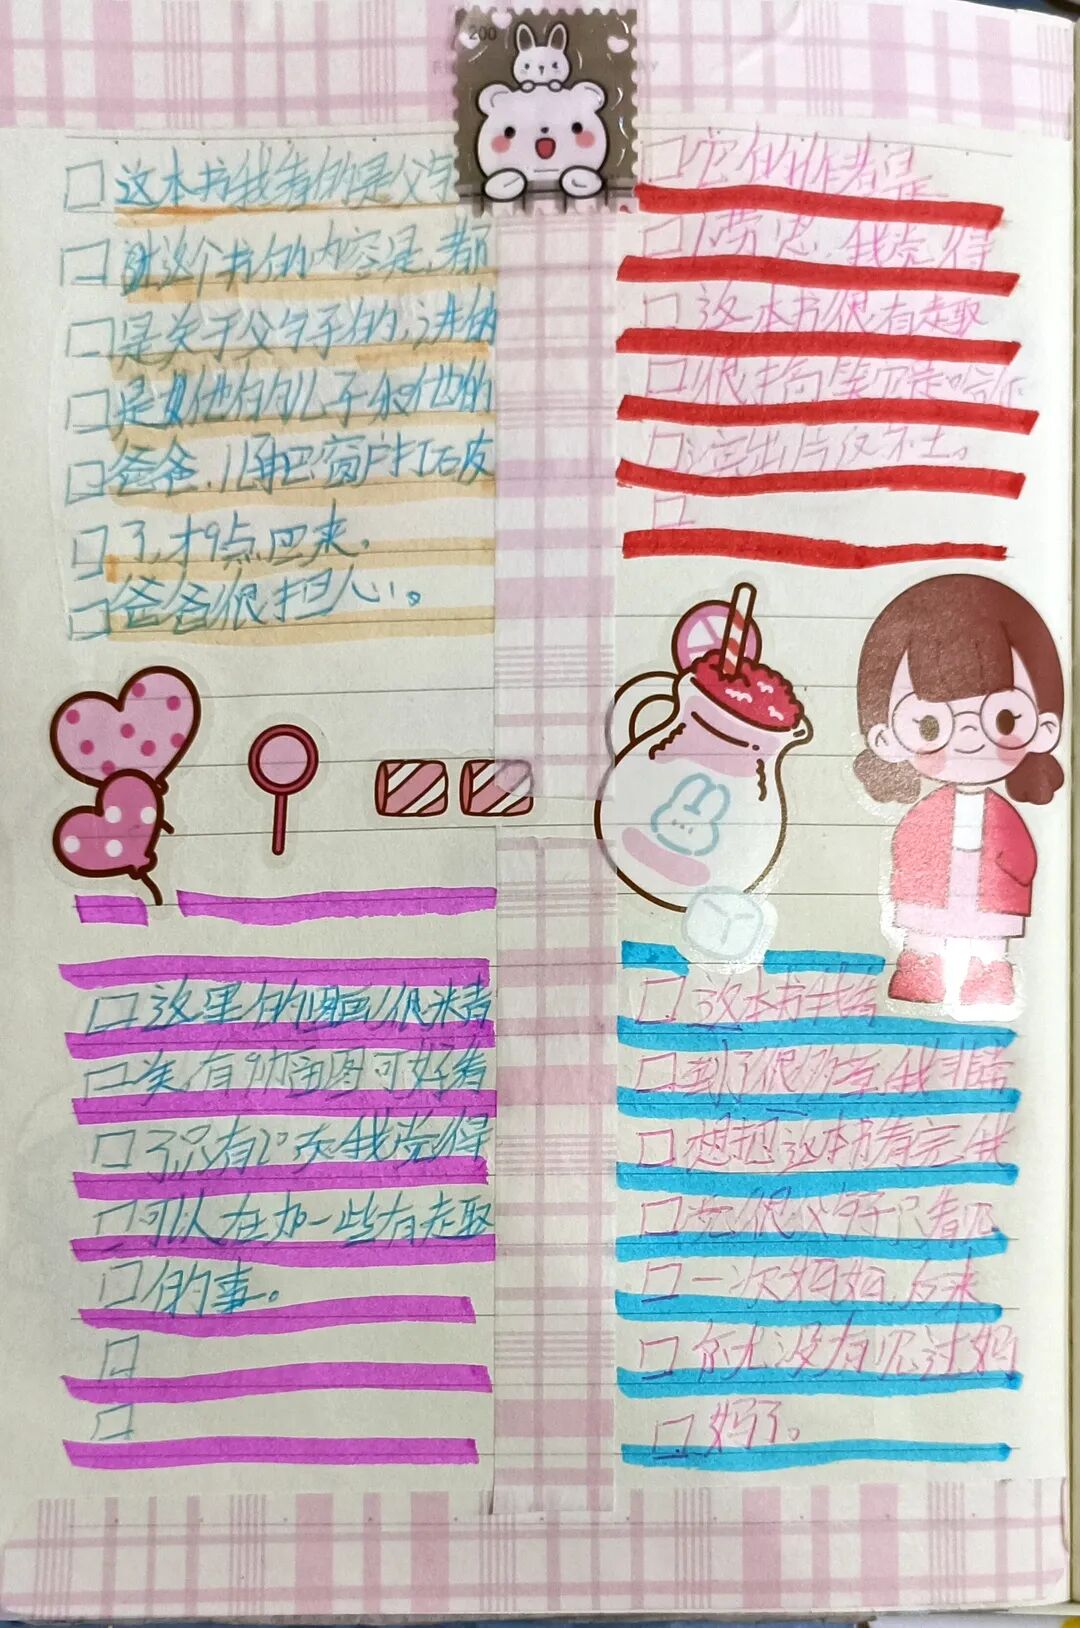 200
□这本书我看的是父子
□这个书的内容是,都
□是关于父与子的,讲的
□是他的儿子和他的
□爸爸,儿子把窗户打破
□了,才9点回来。
□爸爸很担心。
□它的作者是
□卜劳恩,我觉得
□这本书很有趣
□很搞笑
□
□这里的图画很
□有9幅图可好看
□了,只有20页我觉得
□可以在加一些有趣
□的事。
□
□
□这本书我看
□到了很多字,我非常
□想把这本书看完,我
□父子只看见
□一次妈妈,后来
□你尤没有见过妈
□妈了。